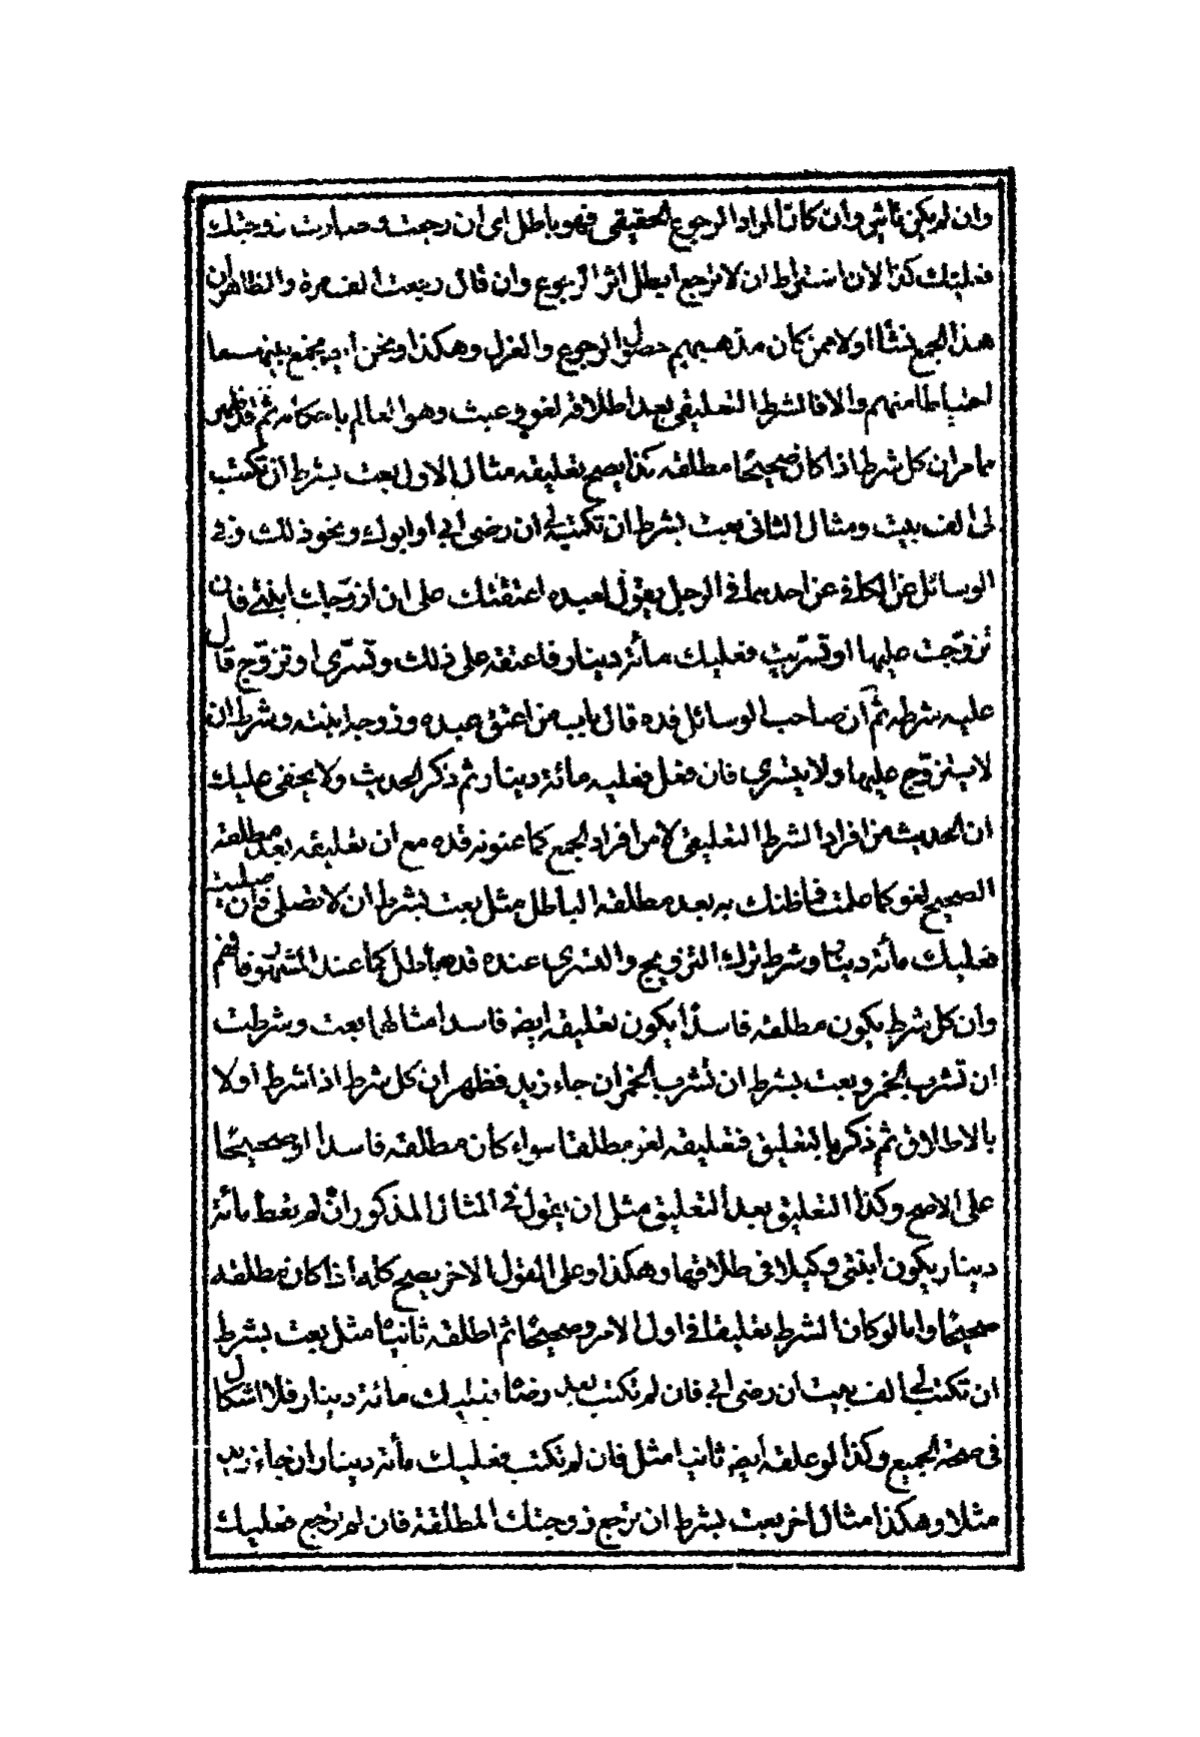 وان لم يكن تاثير وان كان المراد الرجوع الحقيقى فهو باطل اى ان رجعت و صارت زوجتك
فعليك كذا لان اشتراط ان لا ترجع ابطل اثر الرجوع وان قال رجعت الف مرة والظاهر ان
هذا الجمع نشأ اولا ممن كان مذهبهم حصول الرجوع والعزل وهكذا ونحن يجتمع بينهما
احتياطا منهم والا فالشرط التعليقى بعد اطلاقه لغو وعبث وهو العالم باحكامه ثم قد ظهر
مما مر ان كل شرط اذا كان صحيحا مطلقه كذا يصح تعليقه مثال الاول بعت بشرط ان تكتب
لى الف بيت ومثال الثانى بعت بشرط ان تكتب لى ان رضى ابى او ابوك ونحو ذلك وفى
الوسائل عن الكافى عن احدهما فى الرجل يقول لعبده اعتقتك على ان ازوجك ابنتى فان
تزوجت عليها او تسريت فعليك مائة دينار فاعتقه على ذلك وتسرى او تزوج قال
عليه شرطه ثم ان صاحب الوسائل قده قال باب من اعتق عبده وزوجه ابنته وشرط ان
لا يتزوج عليها ولا يتسرى فان فعل فعليه مائة دينار ثم ذكر الحديث ولا يخفى عليك
ان الحديث من افراد الشرط التعليقى لا من افراد الجمع كما عنونه قده مع ان تعليقه بعد مطلقه
الصحيح لغو كما علمت فما ظنك به بعد مطلقه الباطل مثل بعت بشرط ان لا تصلى فان صليت
فعليك مائة دينار وشرط ترك التزويج والتسرى عنده قده باطل كما عند المشهور فافهم
وان كل شرط يكون مطلقه فاسدا يكون تعليقه ايضه فاسدا مثالهما بعت وشرطت
ان تشرب الخمر وبعت بشرط ان تشرب الخمر ان جاء زيد فظهر ان كل شرط اذا شرط اولا
بالاطلاق ثم ذكر بالتعليق فتعليقه لغو مطلقا سواء كان مطلقه فاسدا او صحيحا
على الاصح وكذا التعليق بعد التعليق مثل ان يقول فى المثال المذكور ان لم يعط مائة
دينار يكون ابنتى وكيلا فى طلاقها وهكذا وعلى القول الاخر يصح كله اذا كان مطلقه
صحيحا واما لو كان الشرط تعليقا فى اول الامر وصحيحا ثم اطلقه ثانيا مثل بعت بشرط
ان تكتب لى الف بيت ان رضى ابى فان لم تكتب بعد رضا فعليك مائة دينار فلا اشكال
فى صحة الجميع وكذا لو علقه ايضه ثانيا مثل فان لم تكتب فعليك مأة دينار ان جاء زيد
مثلا وهكذا مثال اخر بعت بشرط ان ترجع زوجتك المطلقة فان لم ترجع فعليك